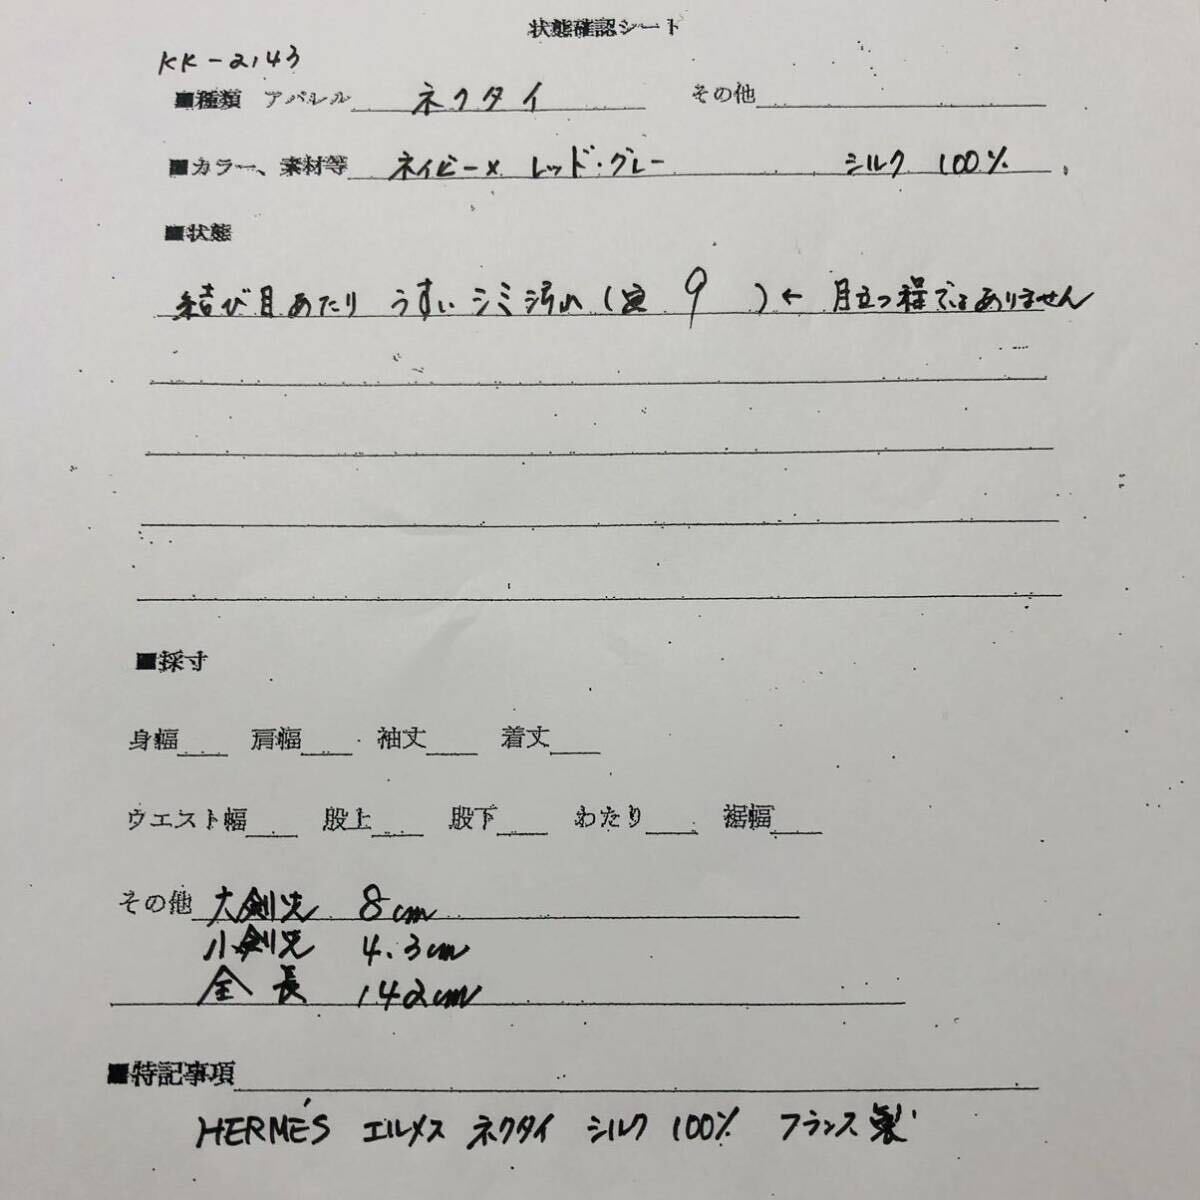 状態確認シート
KK-2143
■種類 アパレル ネクタイ その他
■カラー、素材等 ネイビー× レッド・グレー シルク 100%
■状態
結び目あたり うすい シミ 汚れ ( 9 ) ← 目立つ程ではありません
■採寸
身幅 肩幅 袖丈 着丈
ウエスト幅 股上 股下 わたり 裾幅
その他 大剣先 8cm
小剣先 4.3cm
全長 142cm
■特記事項
HERMÉS エルメス ネクタイ シルク 100% フランス製